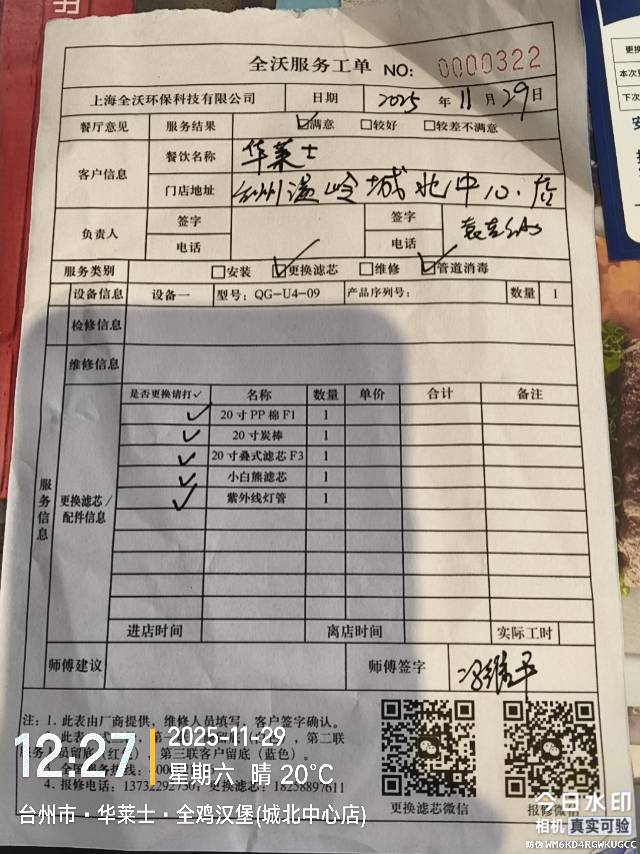 全沃服务工单 NO: 0000322
上海全沃环保科技有限公司 日期 2025 年 11 月 29 日
餐厅意见 服务结果 ☑满意 □较好 □较差不满意
客户信息 餐饮名称 华莱士
门店地址 台州温岭城北中心店
负责人 签字 签字
电话 电话
服务类别 □安装 ☑更换滤芯 □维修 ☑管道消毒
设备信息 设备一 型号: QG-U4-09 产品序列号: 数量 1
检修信息
维修信息
服务信息
更换滤芯/配件信息
是否更换请打✓ 名称 数量 单价 合计 备注
✓ 20寸PP棉F1 1
✓ 20寸炭棒 1
✓ 20寸叠式滤芯F3 1
✓ 小白熊滤芯 1
✓ 紫外线灯管 1
进店时间 离店时间 实际工时
师傅建议 师傅签字
注: 1. 此表由厂商提供, 维修人员填写, 客户签字确认。
第二联
留底(红色), 第三联客户留底(蓝色)。
4. 报修电话: 18258897611
更换滤芯微信 报修微信
12:27
2025-11-29
星期六 晴 20°C
台州市·华莱士·全鸡汉堡(城北中心店)
今日水印
相机 真实可验
防伪 WM6KD4RGWKUGCC
更换
本次
下次